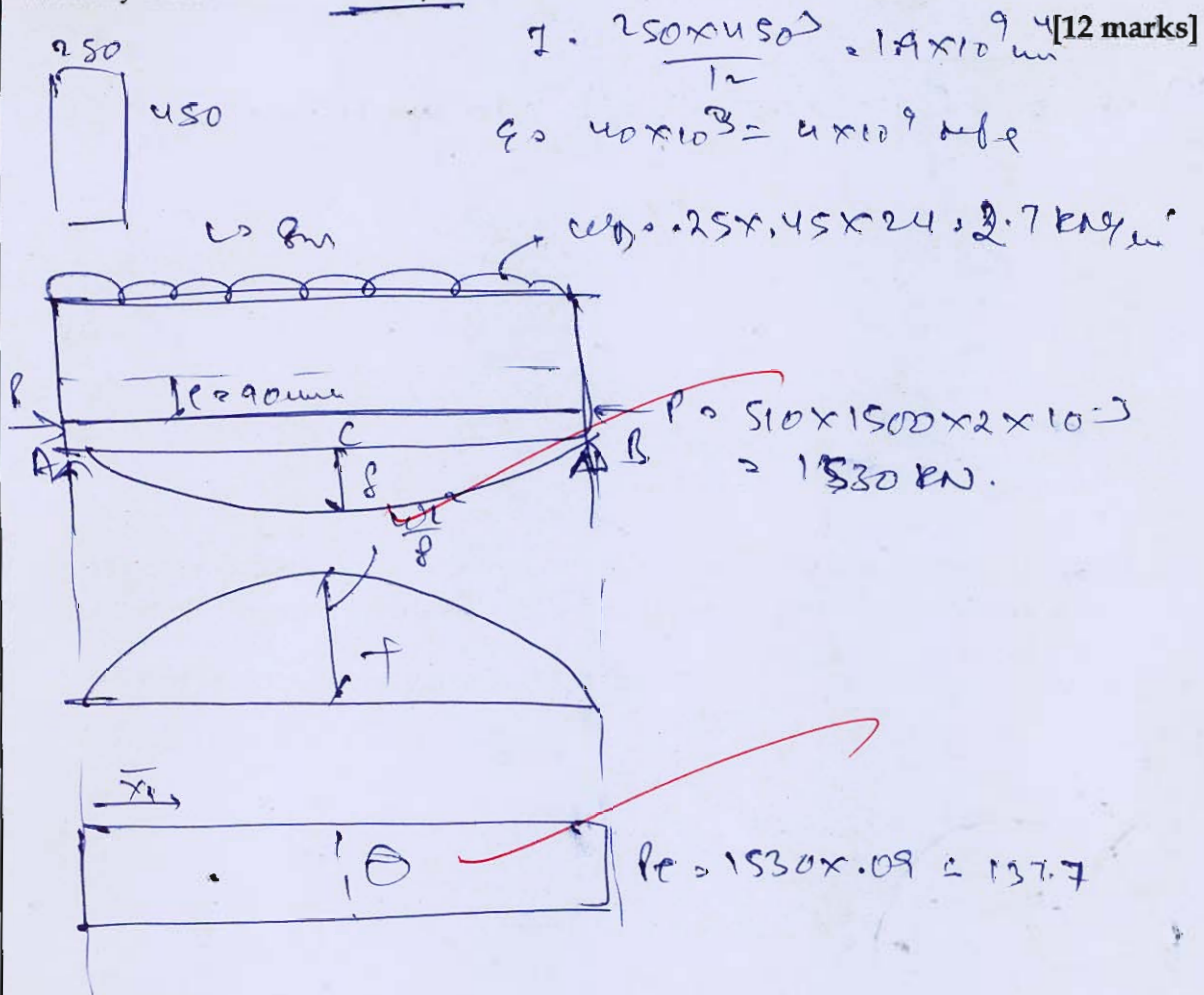 [12 marks]
250
450
I = 250×450³ / 12 = 1.9×10⁹ mm⁴
40×10³ = 4×10⁹
L = 8m
.25×.45×24 = 2.7 kN/m
e = 90mm
P
P = 510×1500×2×10⁻³
= 1530 kN.
A
C
B
δ
8
+
x₁
⊖
Pe = 1530×.09 = 137.7